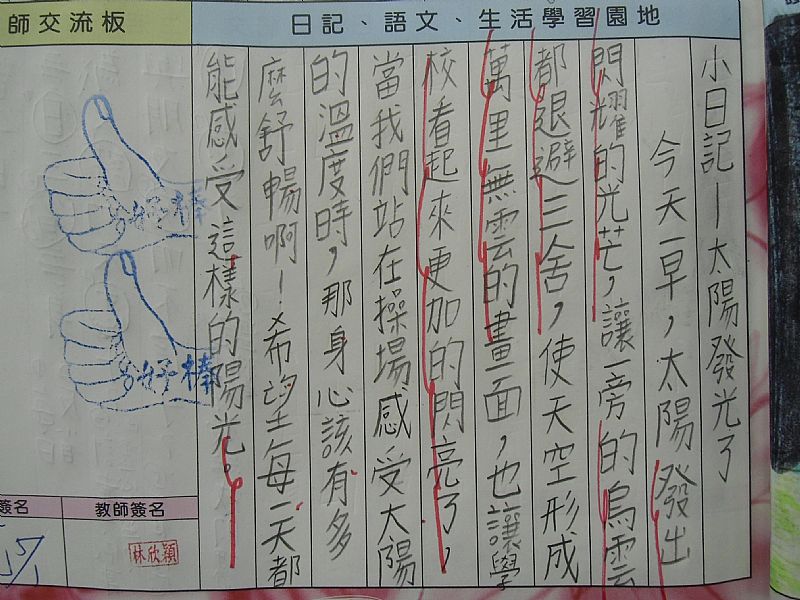 日記、語文、生活學習園地
小日記—太陽發光了
今天一早，太陽發出
閃耀的光芒，讓一旁的烏雲
都退避三舍，使天空形成
萬里無雲的畫面，也讓學
校看起來更加的閃亮了，
當我們站在操場感受太陽
的溫度時，那身心該有多
麼舒暢啊！希望每一天都
能感受這樣的陽光。
師交流板
好棒
好棒
教師簽名
林欣穎
簽名